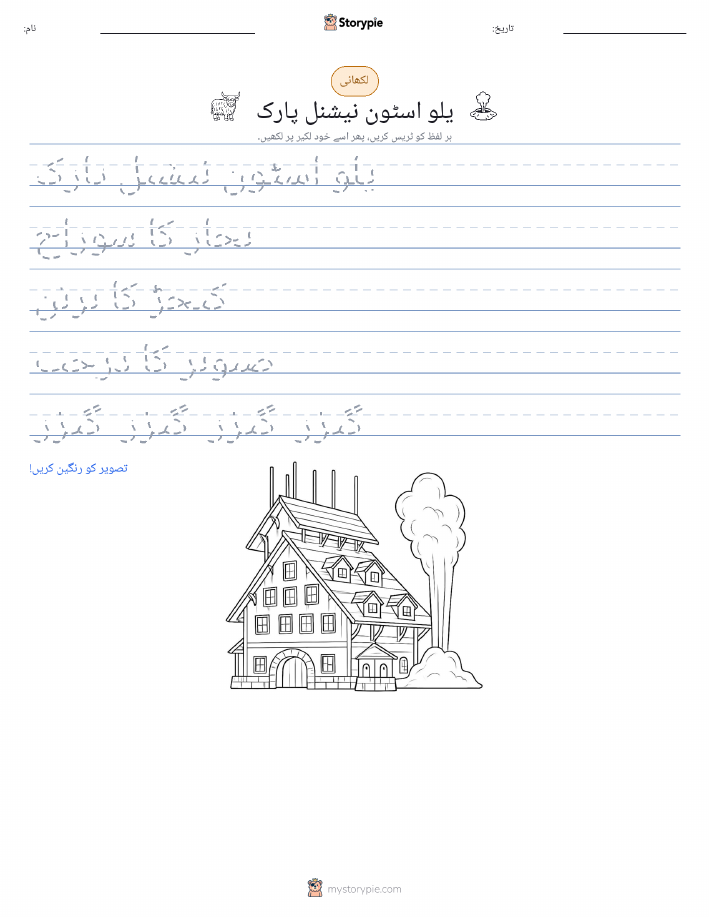 نام:
Storypie
تاریخ:
لکھائی
یلو اسٹون نیشنل پارک
ہر لفظ کو ٹریس کریں، پھر اسے خود لکیر پر لکھیں۔
یلو اسٹون نیشنل پارک
بخار کا سوراخ
کیچڑ کا برتن
صنوبر کا درخت
گیزر گیزر گیزر گیزر
تصویر کو رنگین کریں!
mystorypie.com